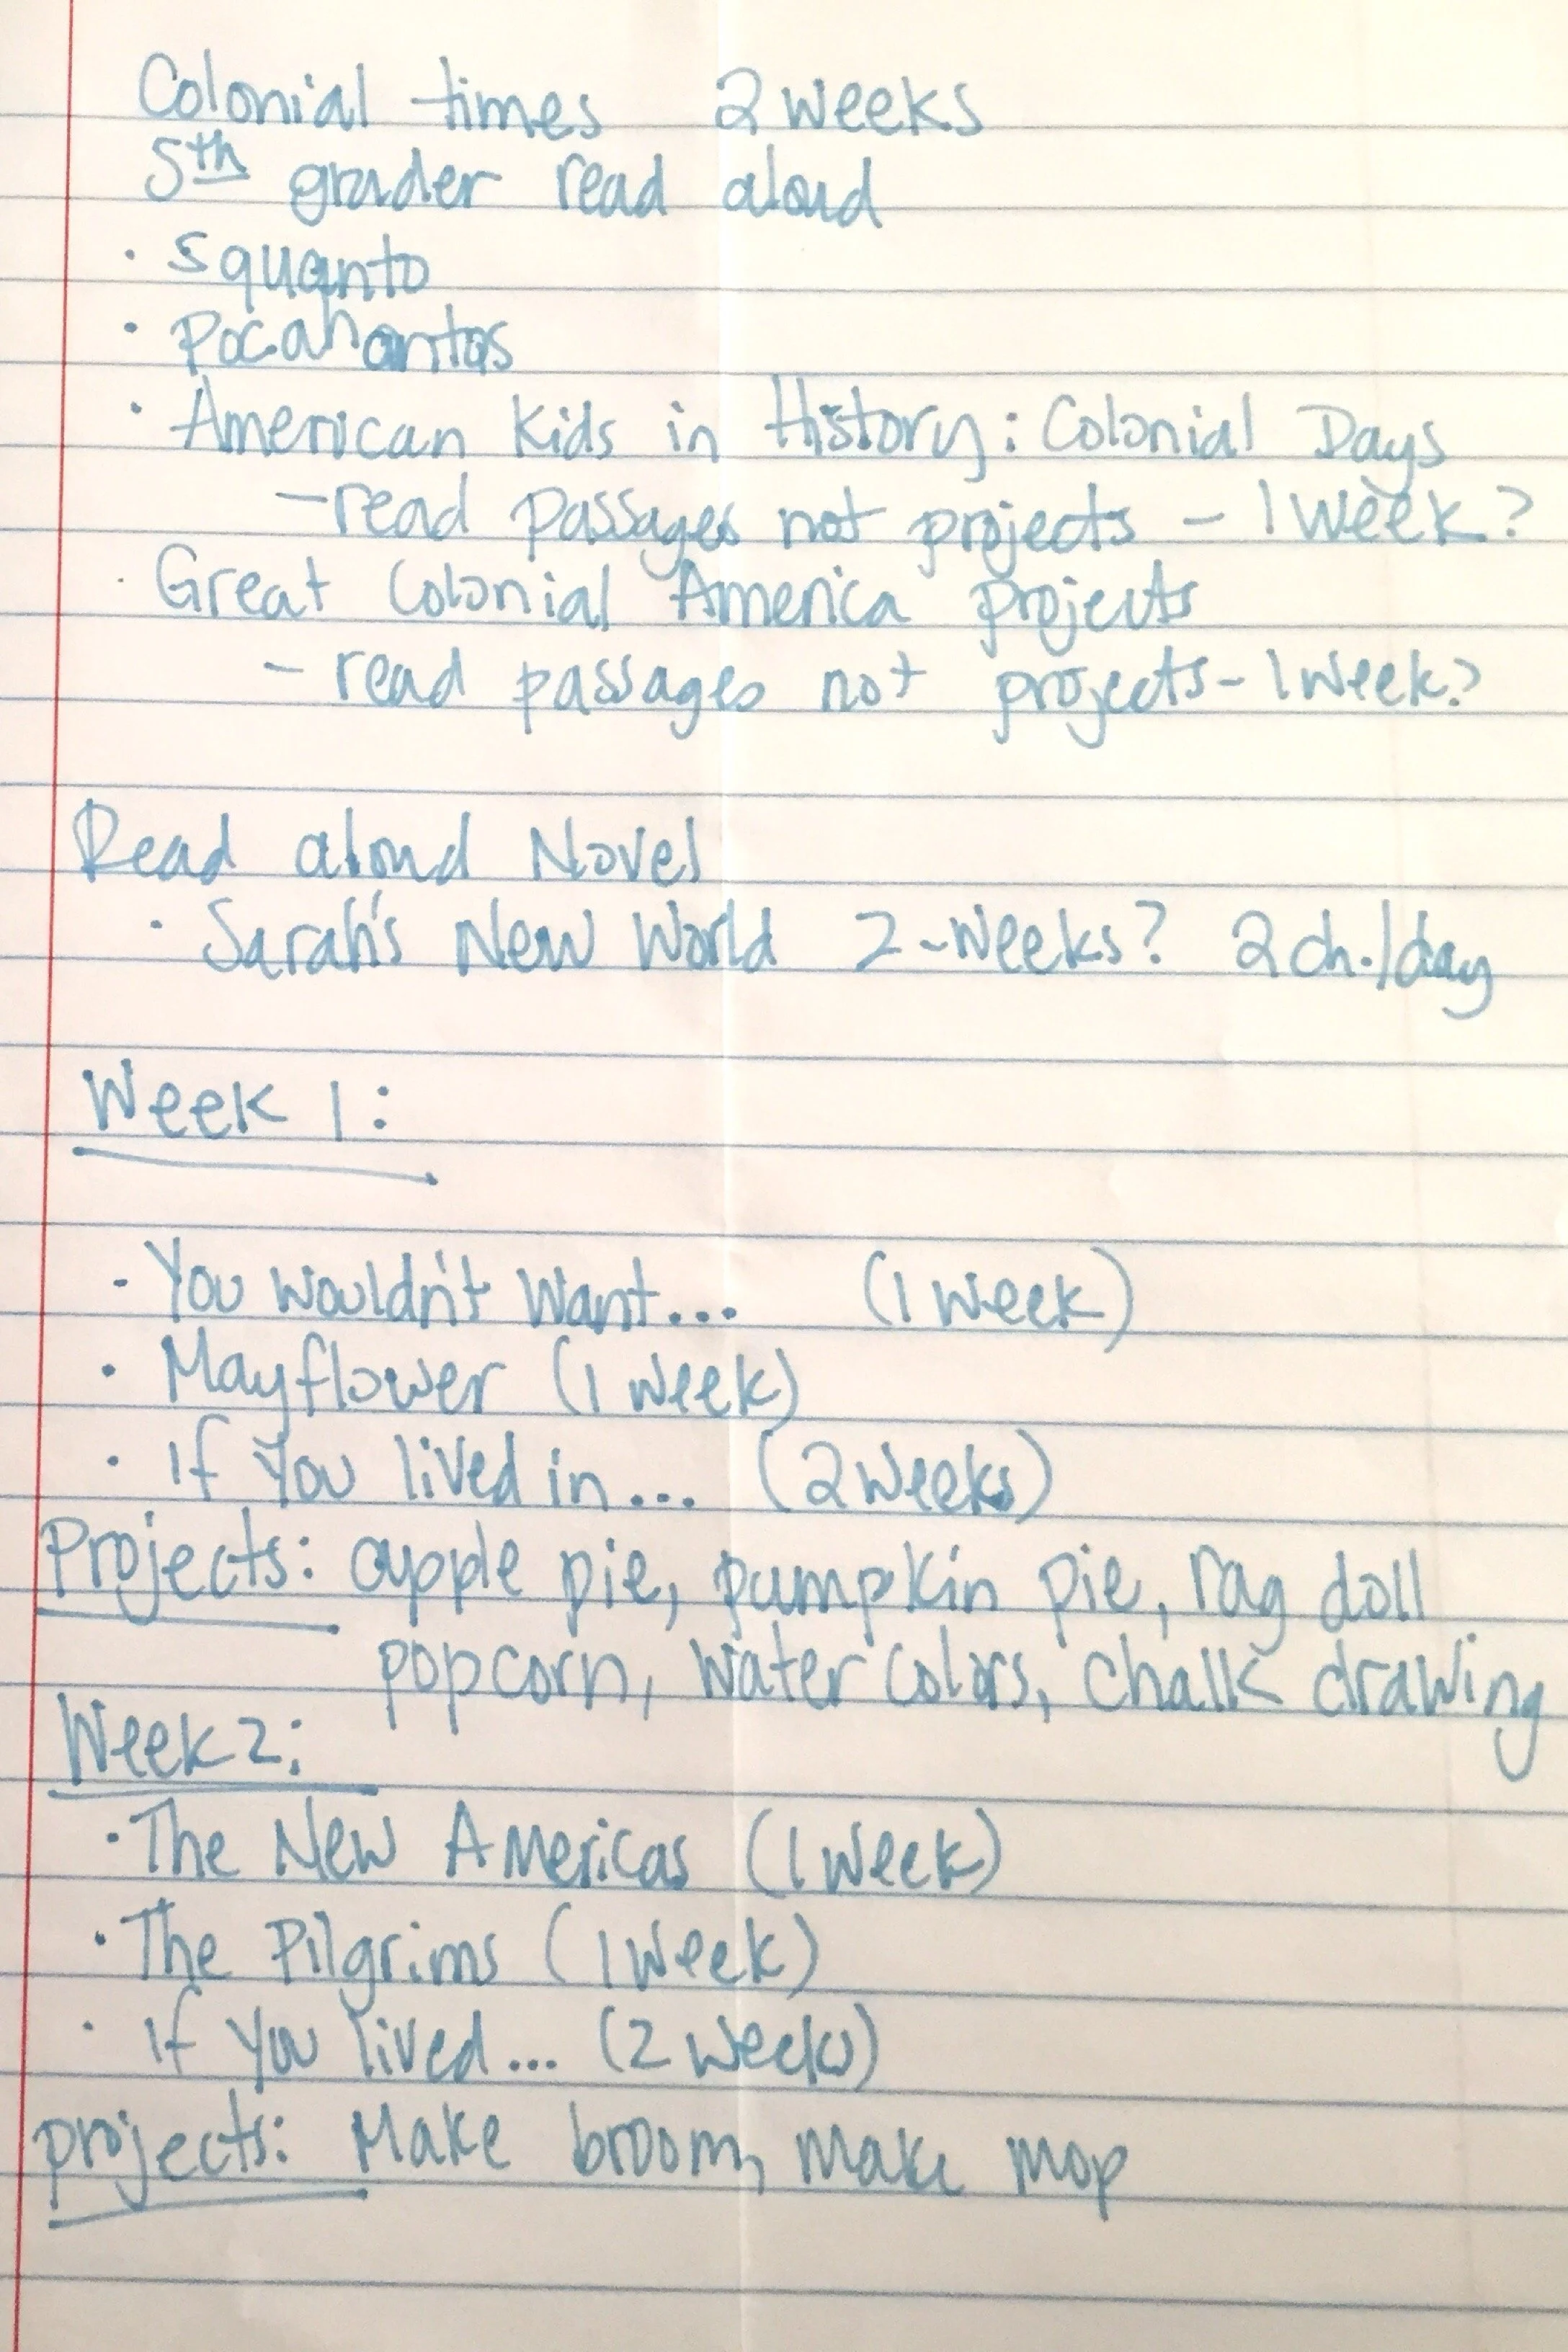 Colonial times 2 weeks
5th grader read aloud
· Squanto
· Pocahontas
· American Kids in History: Colonial Days
- read passages not projects - 1 week?
· Great Colonial America projects
- read passages not projects - 1 week?
Read aloud Novel
· Sarah's New World 2-weeks? 2 ch./day
Week 1:
- You wouldn't want... (1 week)
· Mayflower (1 week)
· If you lived in... (2 weeks)
Projects: apple pie, pumpkin pie, rag doll
popcorn, water colors, chalk drawing
Week 2:
· The New Americas (1 week)
· The Pilgrims (1 week)
· If you lived... (2 weeks)
projects: Make broom, make mop